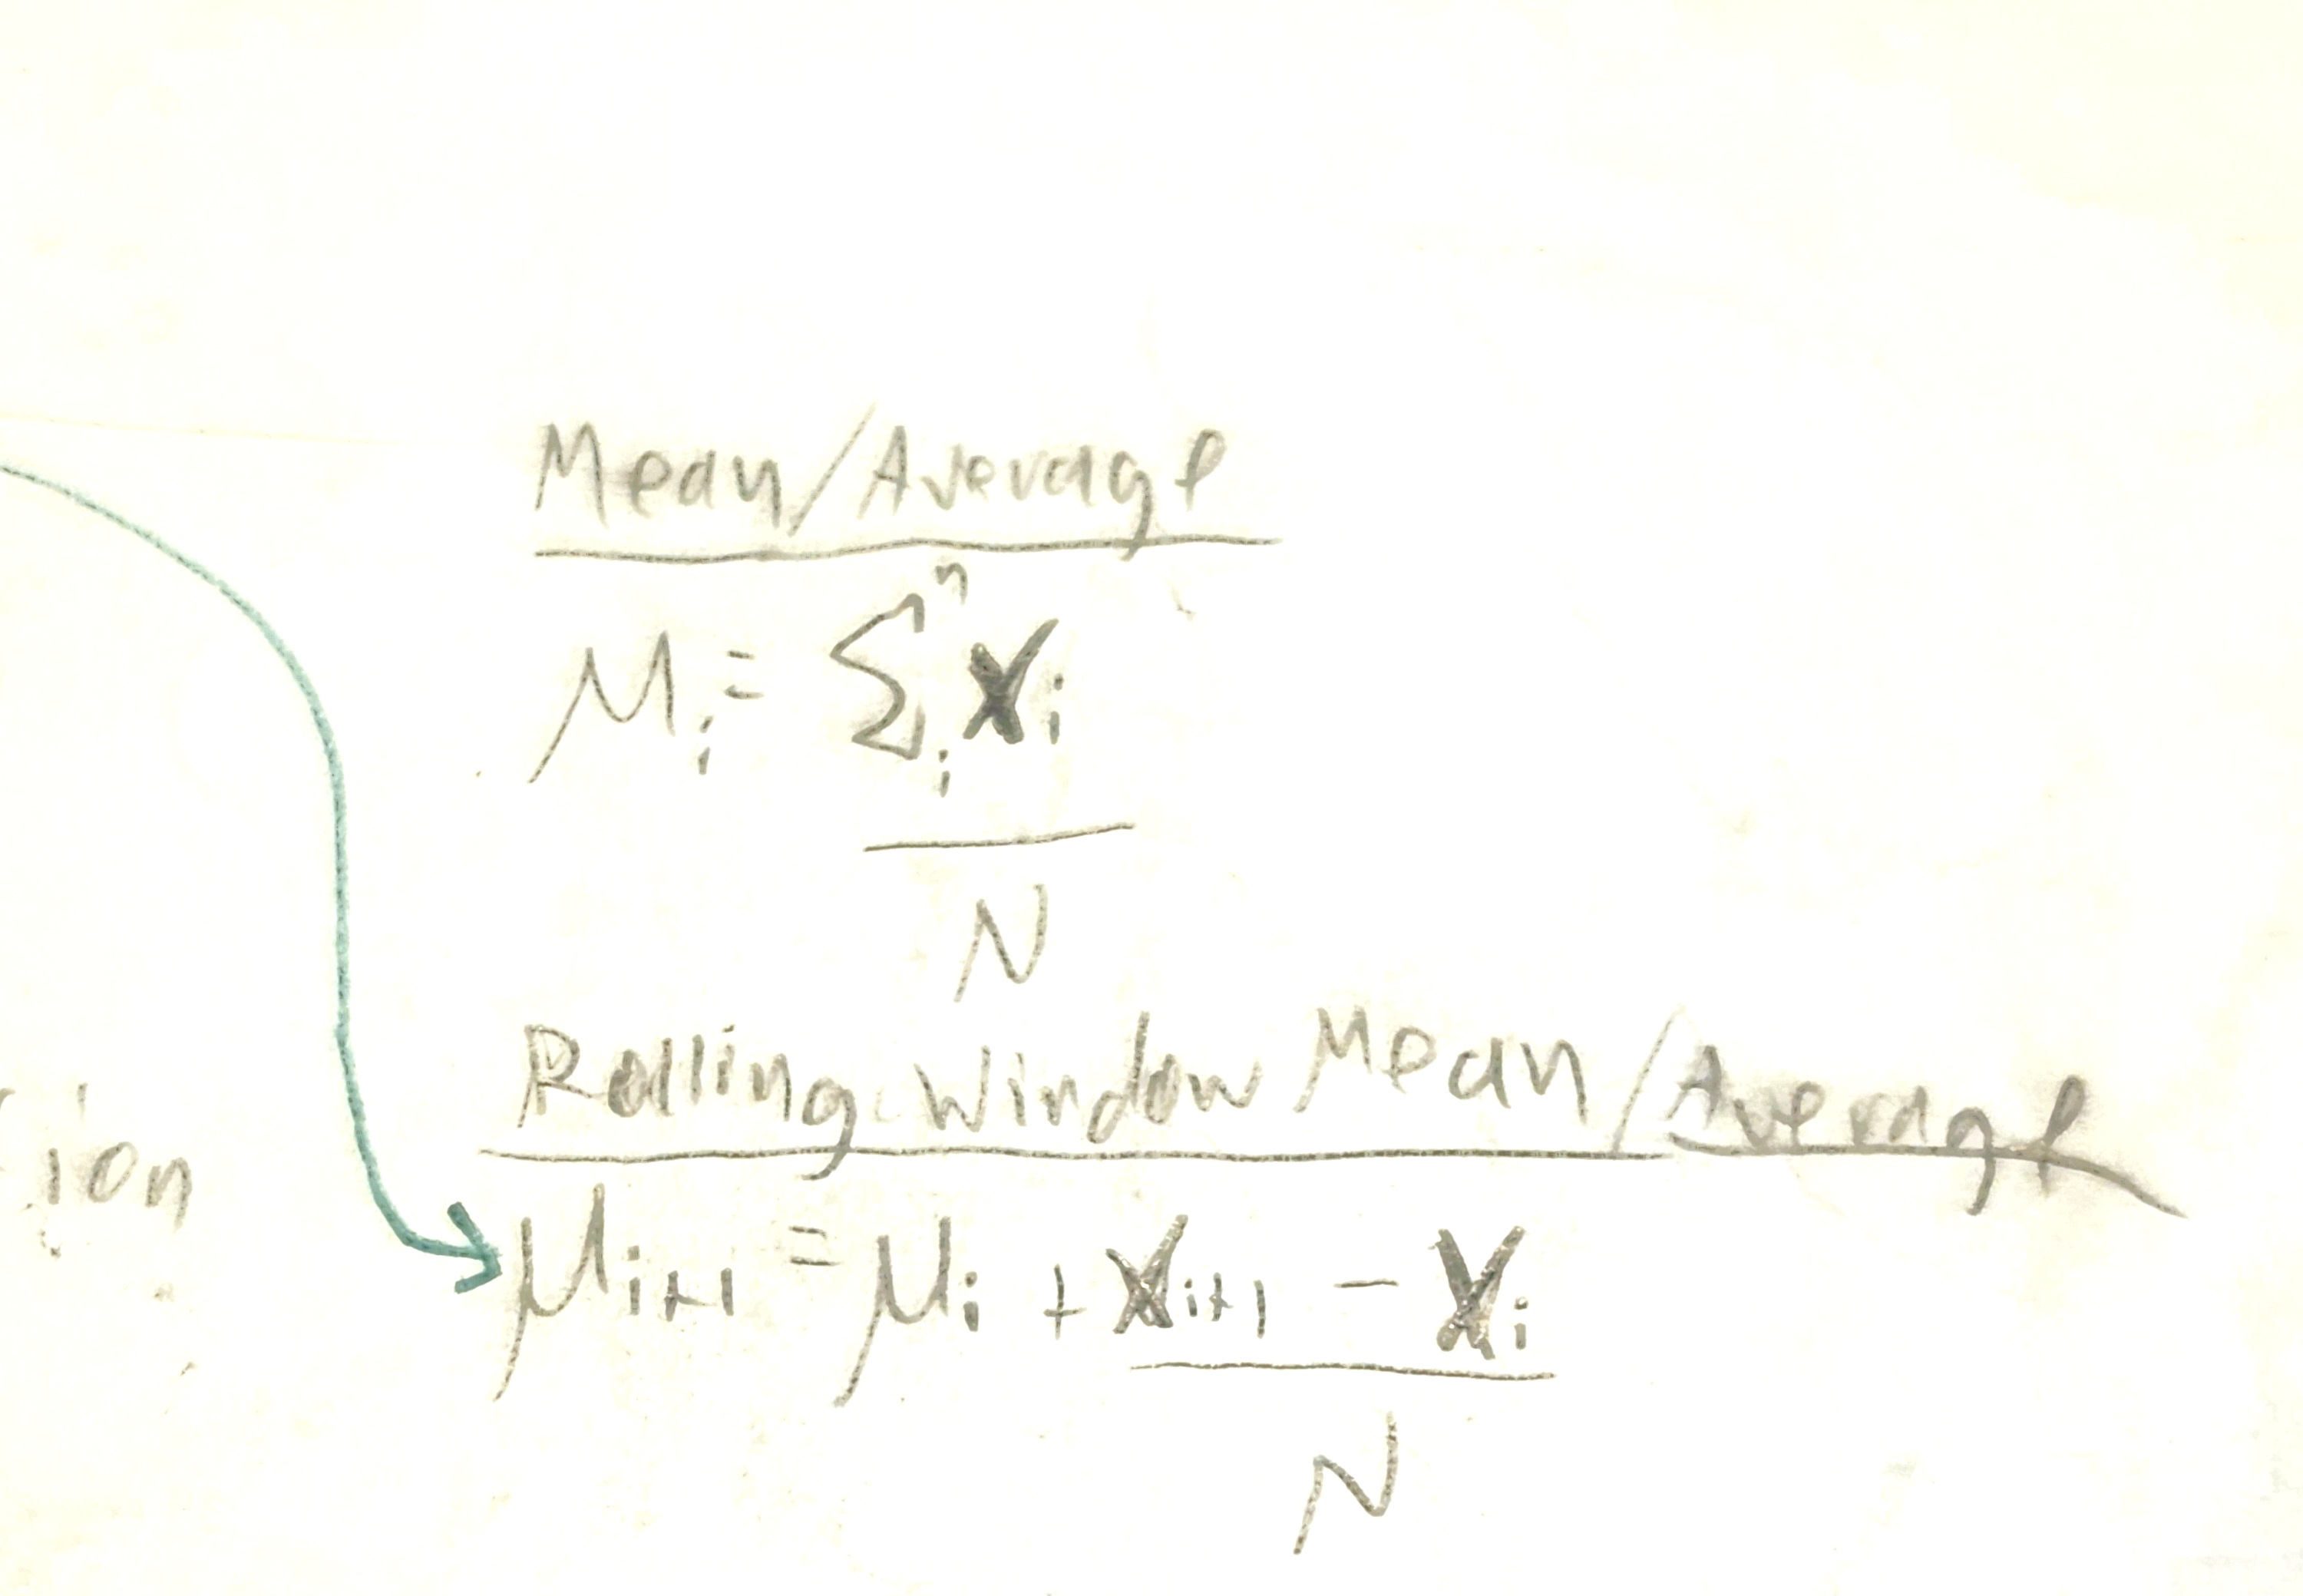 Mean/Average
μᵢ = Σᵢⁿ xᵢ
N
Rolling Window Mean/Average
ion
μᵢ₊₁ = μᵢ + xᵢ₊₁ − xᵢ
N